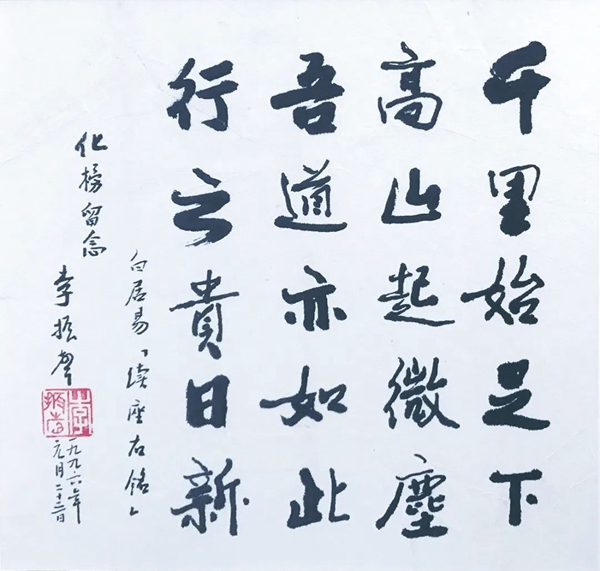 千里始足下
高山起微塵
吾道亦如此
行之貴日新
白居易「续座右铭」
化榜留念
李振聲
一九九六年
元月二十三日